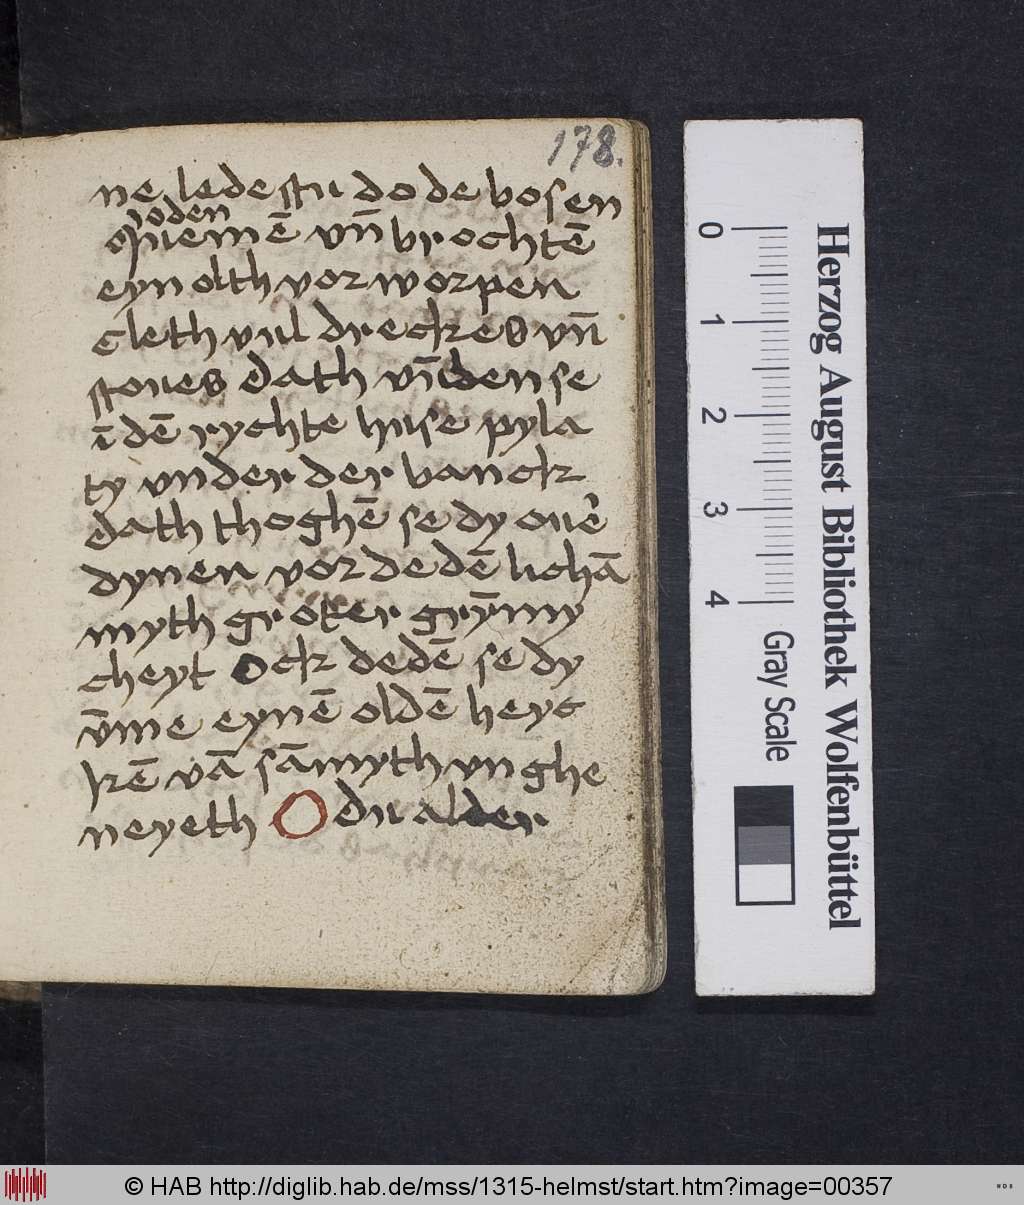 178.
ne ledestu do de bosen
joden
quemē vn̄ brochtē
eyn olth vor worpen
cleth vul dreckes vn̄
stoues dath vn̄den se
ī dē rychte huse pyla
ty vnder der banck
dath thoghē se dy ouer
dynen vor dedē lichā
myth groter grȳmy
cheyt Ock dedē se dy
v̄me eynē oldē heyc
kē vā sāmyth vn ghe
neyeth O du alder
0
1
2
3
4
Gray Scale
Herzog August Bibliothek Wolfenbüttel
© HAB http://diglib.hab.de/mss/1315-helmst/start.htm?image=00357